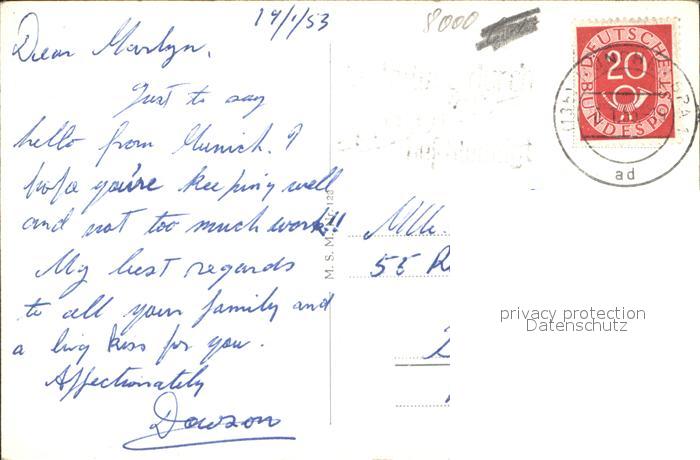 19/1/53
8000
Dear Marlyn,
Just to say
hello from Munich. I
hope you're keeping well
and not too much work!!
My best regards
to all your family and
a big kiss for you.
Affectionately
Dawson
M. S. M. Nr. 123
DEUTSCHE BUNDESPOST
20
ad
Mlle.
55 R
privacy protection
Datenschutz